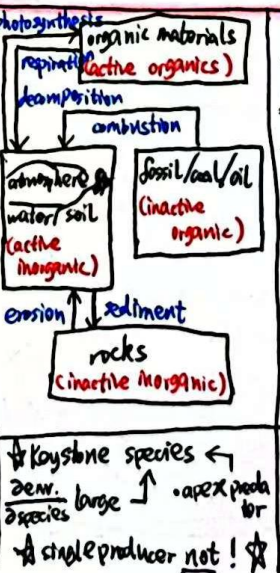 photosynthesis
organic materials
respiration
(active organics)
decomposition
combustion
atmosphere
water/soil
(active
inorganic)
fossil/coal/oil
(inactive
organic)
erosion
sediment
rocks
(inactive inorganic)
☆ Keystone species ←
∂env.
∂species
large
• apex preda
tor
☆ single producer not! ☆